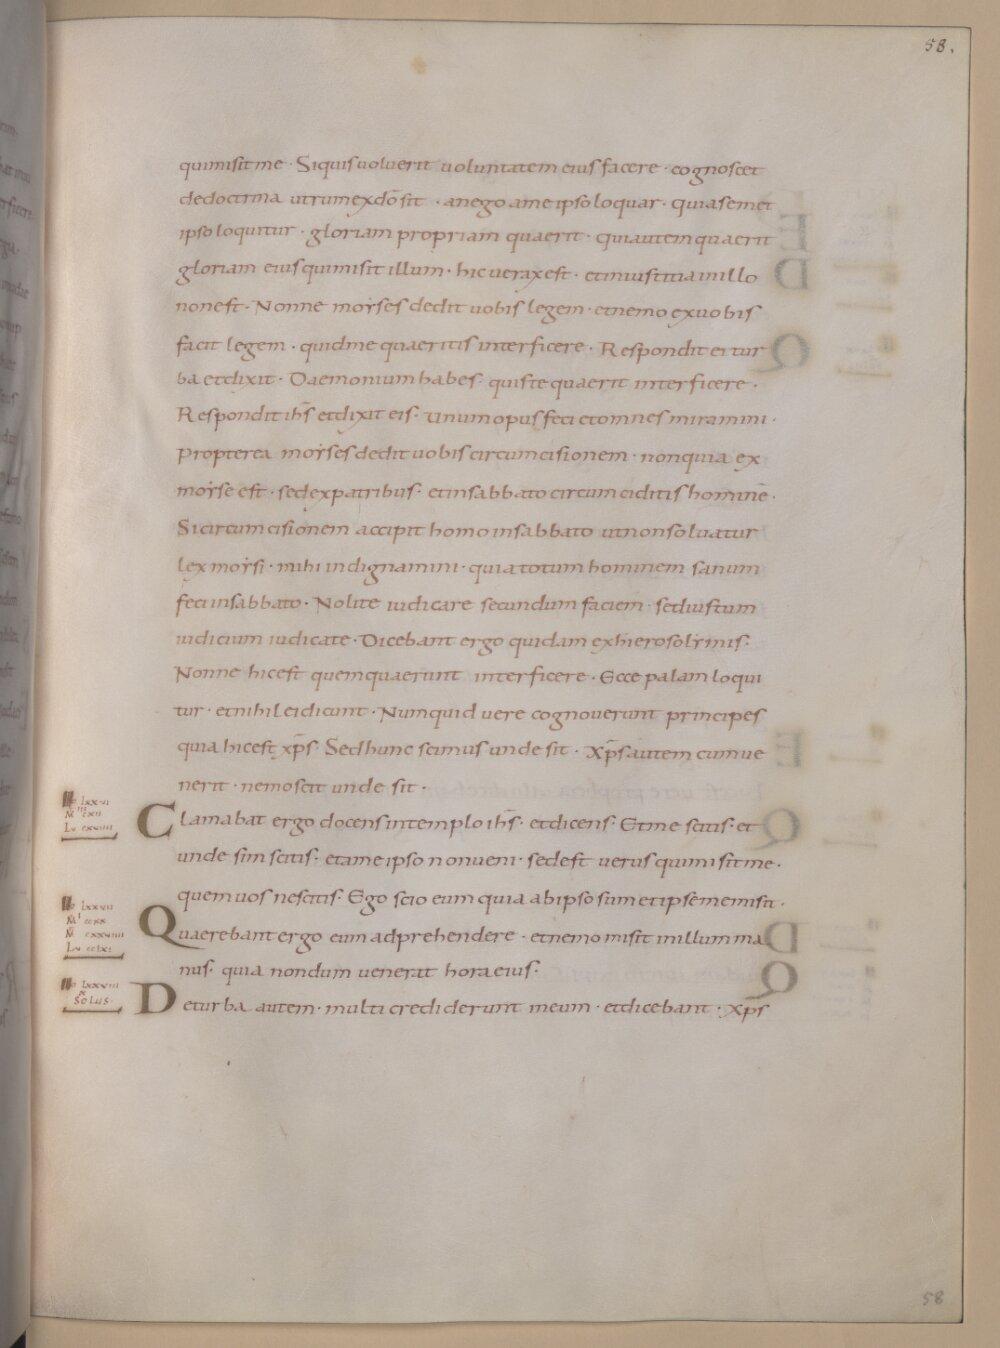 58.
qui misit me · Siquis uoluerit uoluntatem eius facere · cognoscet
de doctrina utrum ex dō sit · an ego a me ipso loquar · qui a semet
ipso loquitur · gloriam propriam quaerit · qui autem quaerit
gloriam eius qui misit illum · hic uerax est · et iniustitia in illo
non est · Nonne moyses dedit uobis legem · et nemo ex uobis
facit legem · quid me quaeritis interficere · Respondit ei tur
ba et dixit · Daemonium habes · quis te quaerit interficere ·
Respondit ihs̄ et dixit eis · unum opus feci et omnes miramini ·
propterea moyses dedit uobis circumcisionem · non quia ex
moyse est · sed ex patribus · et in sabbato circumciditis hominē ·
Si circumcisionem accipit homo in sabbato ut non soluatur
lex moysi · mihi indignamini · quia totum hominem sanum
feci in sabbato · Nolite iudicare secundum faciem · sed iustum
iudicium iudicate · Dicebant ergo quidam ex hierosolymis ·
Nonne hic est quem quaerunt interficere · Ecce palam loqui
tur · et nihil ei dicunt · Numquid uere cognouerunt principes
quia hic est xp̄s · Sed hunc scimus unde sit · Xp̄s autem cum ue
nerit · nemo scit unde sit ·
Clamabat ergo docens in templo ihs̄ · et dicens · Et me scitis · et
unde sim scitis · et a me ipso non ueni · sed est uerus qui misit me ·
quem uos nescitis · Ego scio eum quia ab ipso sum et ipse me misit ·
Quaerebant ergo eum adprehendere · et nemo misit in illum ma
nus · quia nondum uenerat hora eius ·
SOLUS·
De turba autem · multi crediderunt in eum · et dicebant · xp̄s
58